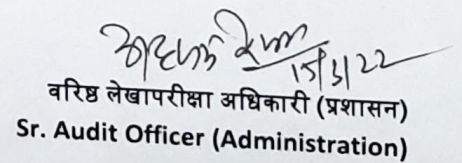 15/3/22
वरिष्ठ लेखापरीक्षा अधिकारी (प्रशासन)
Sr. Audit Officer (Administration)